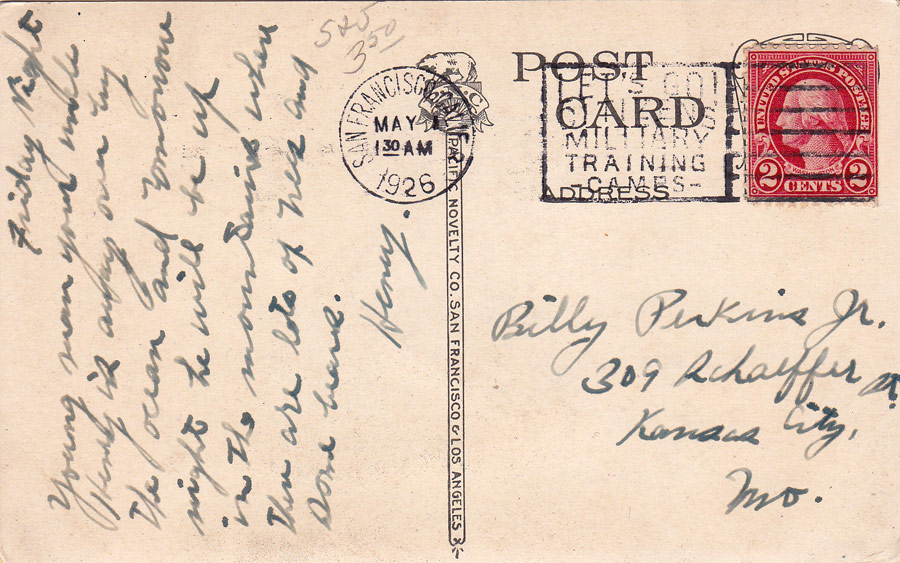 Friday Night
Young man your uncle
Henry is away out by
the ocean and tomorrow
night he will be up
in the mountains where
there are lots of trees and
some bears.
Henry.
350
SAN FRANCISCO, CAL.
MAY 1
1 30 AM
1926
PACIFIC NOVELTY CO. SAN FRANCISCO & LOS ANGELES
POST
CARD
ADDRESS
LET'S GO!
CITIZENS
MILITARY
TRAINING
-CAMPS-
UNITED STATES POSTAGE
2 CENTS 2
Billy Perkins Jr.
309 Schaeffer St.
Kansas City,
Mo.